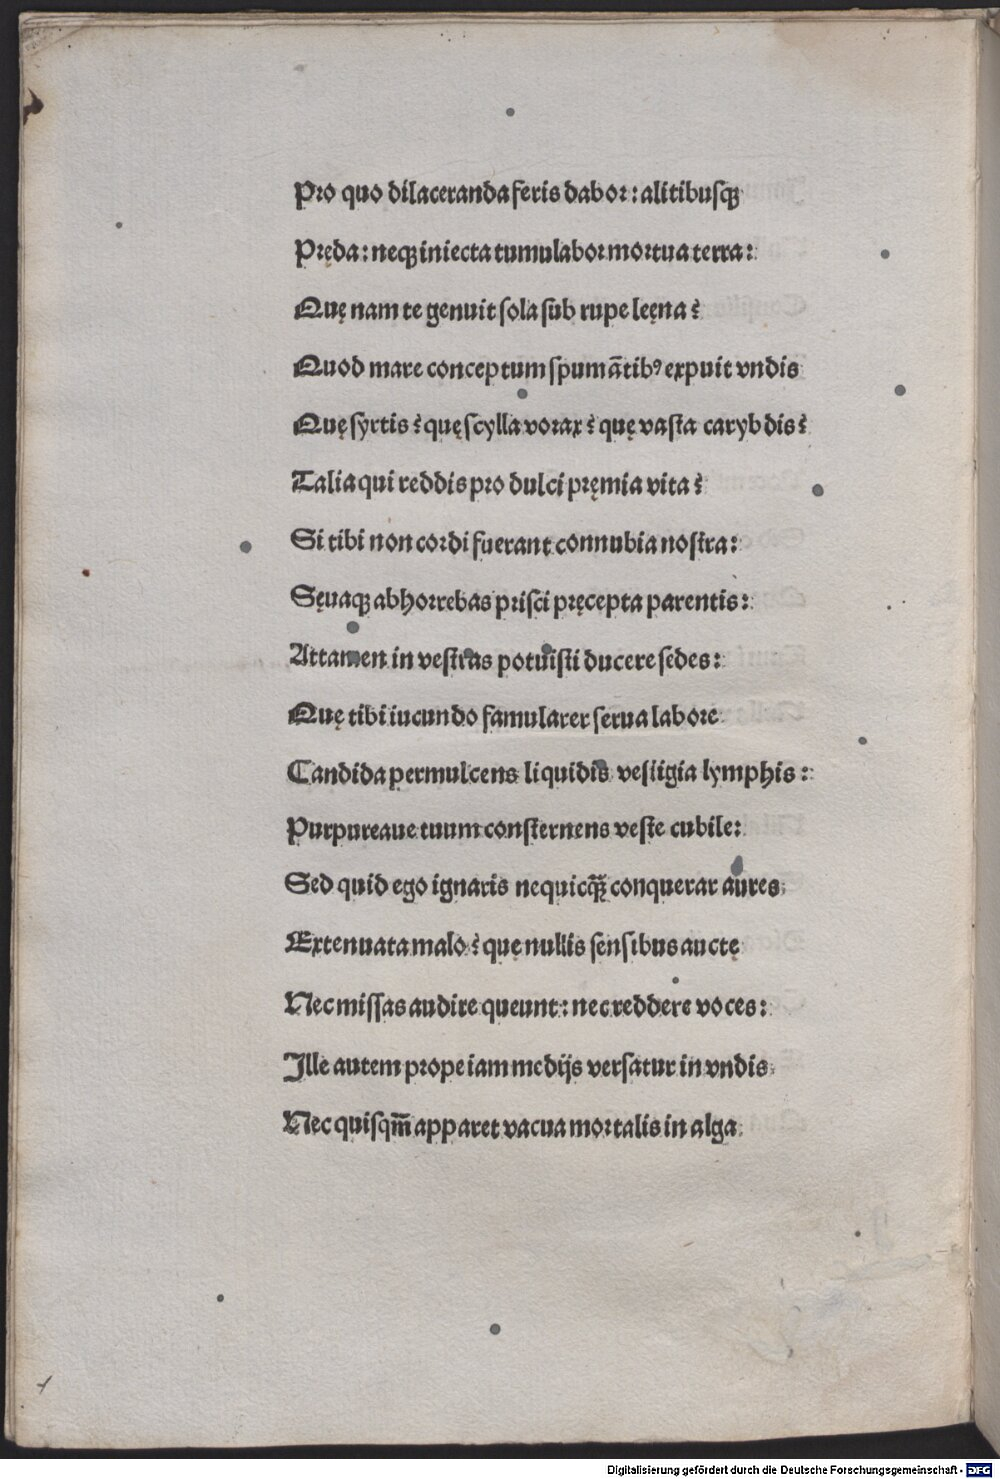 Pro quo dilaceranda feris dabor: alitibusqꝫ
Pręda: neqꝫ iniecta tumulabor mortua terra:
Quę nam te genuit sola sub rupe leęna?
Quod mare conceptum spumātibꝰ expuit vndis
Quę syrtis? quę scylla vorax? quę vasta carybdis?
Talia qui reddis pro dulci pręmia vita?
Si tibi non cordi fuerant connubia nostra:
Sęuaqꝫ abhorrebas prisci pręcepta parentis:
Attamen in vestras potuisti ducere sedes:
Quę tibi iucundo famularer serua labore
Candida permulcens liquidis vestigia lymphis:
Purpureaue tuum consternens veste cubile:
Sed quid ego ignaris nequicqꝫ̄ conquerar aures
Extenuata malo? quę nullis sensibus auctę
Nec missas audire queunt: nec reddere voces:
Ille autem prope iam medijs versatur in vndis
Nec quisqm̄ apparet vacua mortalis in alga
Digitalisierung gefördert durch die Deutsche Forschungsgemeinschaft - DFG